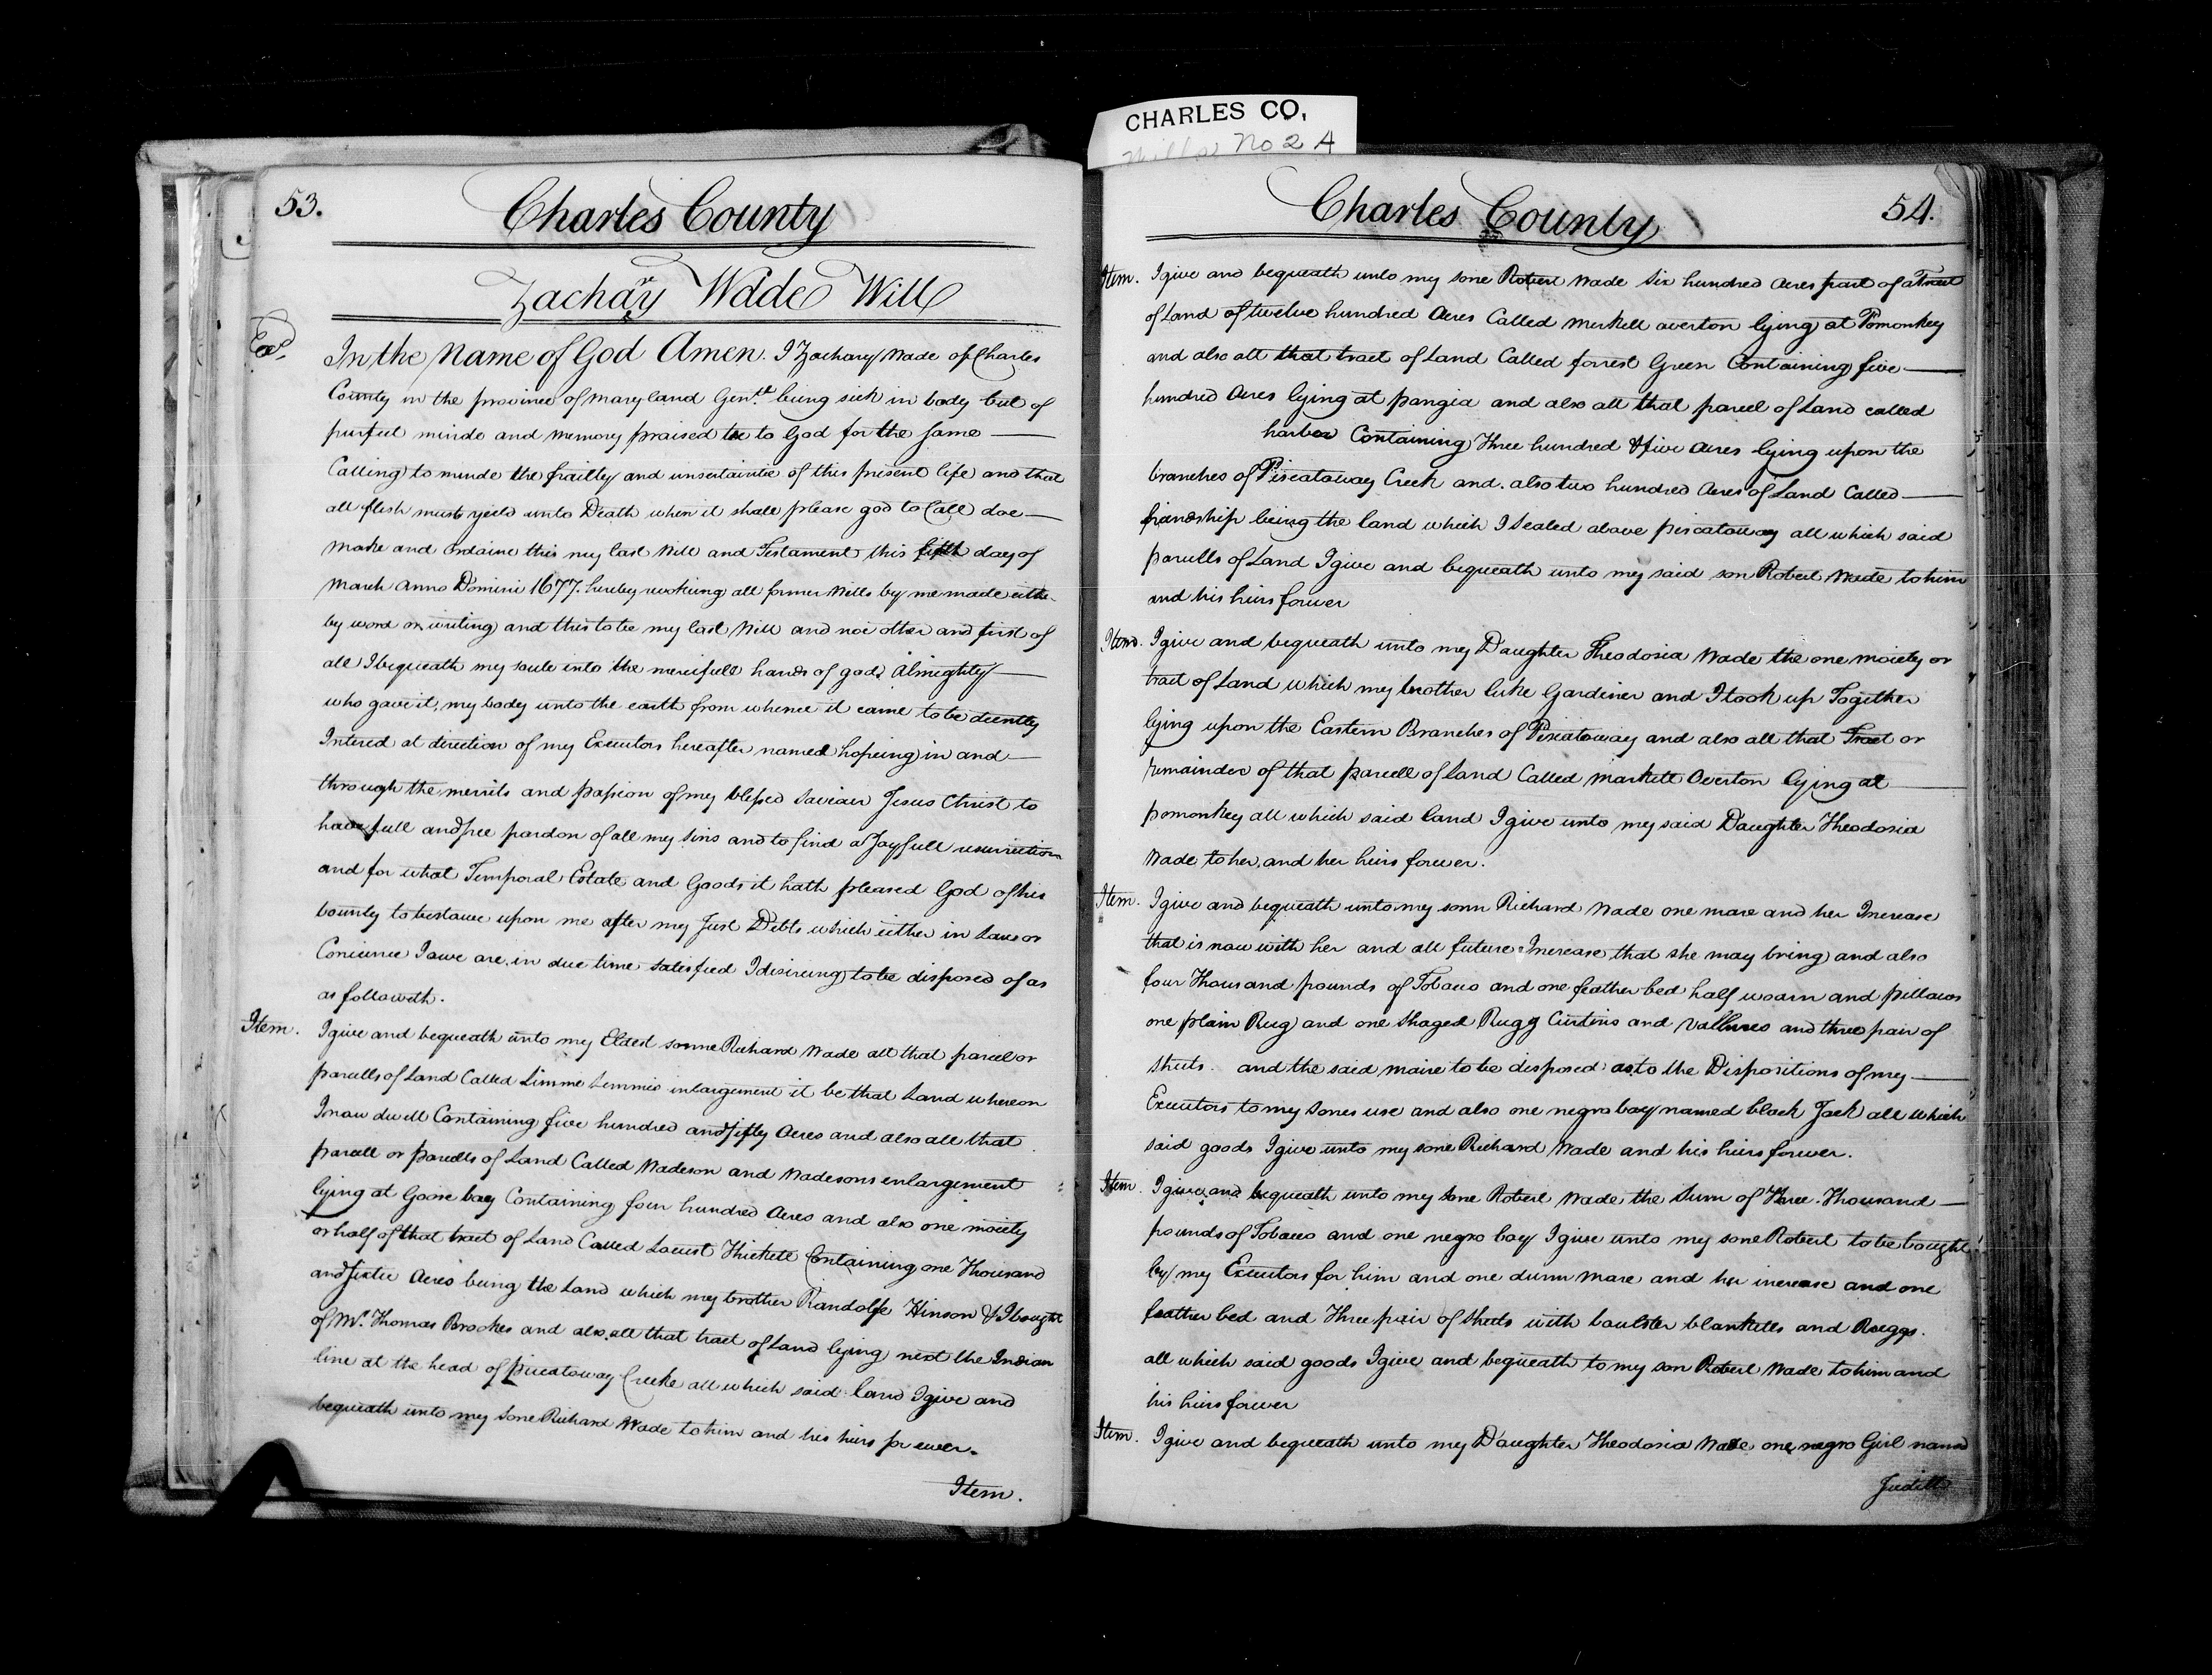 CHARLES CO,
Wills No 2 A
53.
Charles County
Zachary Wade Will
Exd.
In the Name of God Amen. I Zachary Wade of Charles
County in the province of Maryland Gentt. being sick in body but of
purfect minde and memory praised be to God for the same
Calling to minde the frailty and unsertaintie of this present life and that
all flesh must yeild unto Death when it shall please god to Call doe
make and ordaine this my last Will and Testament this fifth day of
March Anno Domini 1677. hereby revokeing all former Wills by me made either
by word or writing and this to be my last Will and noe other and first of
all I bequeath my soule into the mercifull hands of god Almighty
who gave it, my body unto the earth from whence it came to be decently
Intered at direction of my Executors hereafter named hopeing in and
through the merrits and passion of my blessed Saviour Jesus Christ to
have full and free pardon of all my sins and to find a Joyfull resurrection
and for what Temporal Estate and Goods it hath pleased God of his
bounty to bestowe upon me after my Just Debts which either in Law or
Concience I owe are in due time satesfied I desireing to be disposed of as
as followeth.
Item.
I give and bequeath unto my Eldest sonne Richard Wade all that parcel or
parcells of Land Called Simme Semmes inlargement it be that Land whereon
I now dwell Containing five hundred and fifty Acres and also all that
parcell or parcells of Land Called Wadeson and Wadesons enlargement
lying at Goose bay Containing four hundred Acres and also one moiety
or half of that tract of Land Called Locust Thickett Containing one Thousand
and sixtie Acres being the Land which my brother Randolfe Hinson & I bought
of Mr. Thomas Brookes and also all that tract of Land lying next the Indian
line at the head of piscatoway Creeke all which said land I give and
bequeath unto my Sone Richard Wade to him and his heirs for ever.
Item.
Charles County
54.
Item. I give and bequeath unto my sone Robert Wade six hundred Acres part of a Tract
of Land of twelve hundred Acres Called Merkell averton lying at Pomonkey
and also all that tract of Land Called forrest Green Containing five
hundred Acres lying at pangia and also all that parcel of Land called
harbor Containing Three hundred & five Acres lying upon the
branches of Piscataway Creek and also two hundred Acres of Land Called
friendship being the land which I Sealed above piscatoway all which said
parcells of Land I give and bequeath unto my said son Robert Wade to him
and his heirs forever
Item. I give and bequeath unto my Daughter Theodosia Wade the one moiety or
tract of Land which my brother Luke Gardiner and I took up Together
lying upon the Eastern Branches of Piscatoway and also all that Tract or
remainder of that parcell of Land Called Markett Overton lying at
pomonkey all which said land I give unto my said Daughter Theodosia
Wade to her, and her heirs forever.
Item. I give and bequeath unto my sonn Richard Wade one mare and her Increase
that is now with her and all future Increase that she may bring and also
four Thousand pounds of Tobacco and one feather bed half woarn and pillows
one plain Rug and one shaged Rugg Curtins and Vallines and three pair of
sheets. and the said maire to be disposed as to the Dispositions of my
Executors to my sones use and also one negro boy named black Jack all which
said goods I give unto my sone Richard Wade and his heirs forever.
Item. I give and bequeath unto my sone Robert Wade the Sum of Three Thousand
pounds of Tobacco and one negro boy I give unto my sone Robert to be bought
by my Executors for him and one dunn mare and her increase and one
feather bed and Three pair of sheets with boulster blanketts and Ruggs.
all which said goods I give and bequeath to my son Robert Wade to him and
his heirs forever
Item. I give and bequeath unto my Daughter Theodosia Wade one negro Girl named
Judith